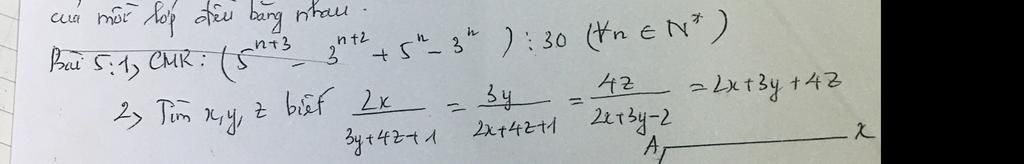 của mỗi lớp đều bằng nhau.
Bài 5: 1, CMR: (5^{n+3} - 3^{n+2} + 5^n - 3^n) ⋮ 30 (∀n ∈ N*)
2, Tìm x, y, z biết 2x/(3y+4z+1) = 3y/(2x+4z+1) = 4z/(2x+3y-2) = 2x+3y+4z
A x